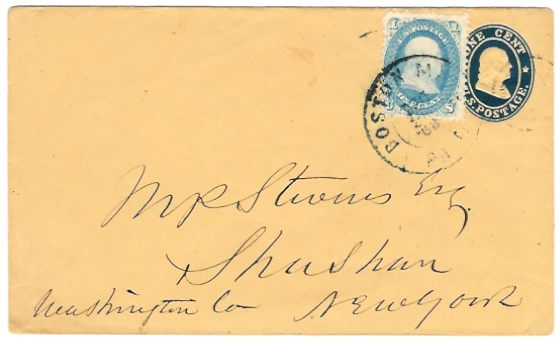 U.S. POSTAGE
ONE CENT
ONE CENT
U.S. POSTAGE.
BOSTON
MR Stevens Esq.
Shushan
Washington Co New York